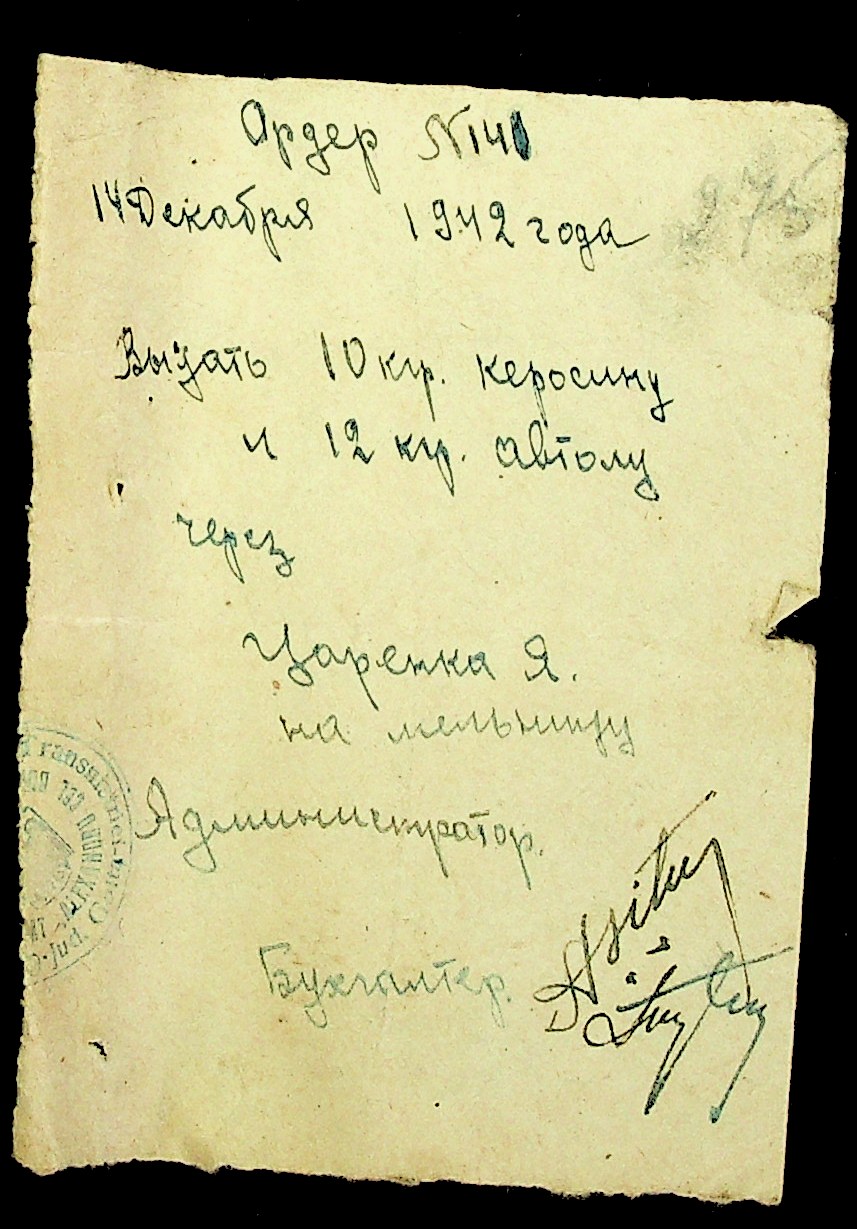 Ордер N 141
275
14 Декабря 1942 года
Выдать 10 кгр. керосину
и 12 кгр. автолу
через
Царенка Я.
на мельницу
Администратор.
Бухгалтер.